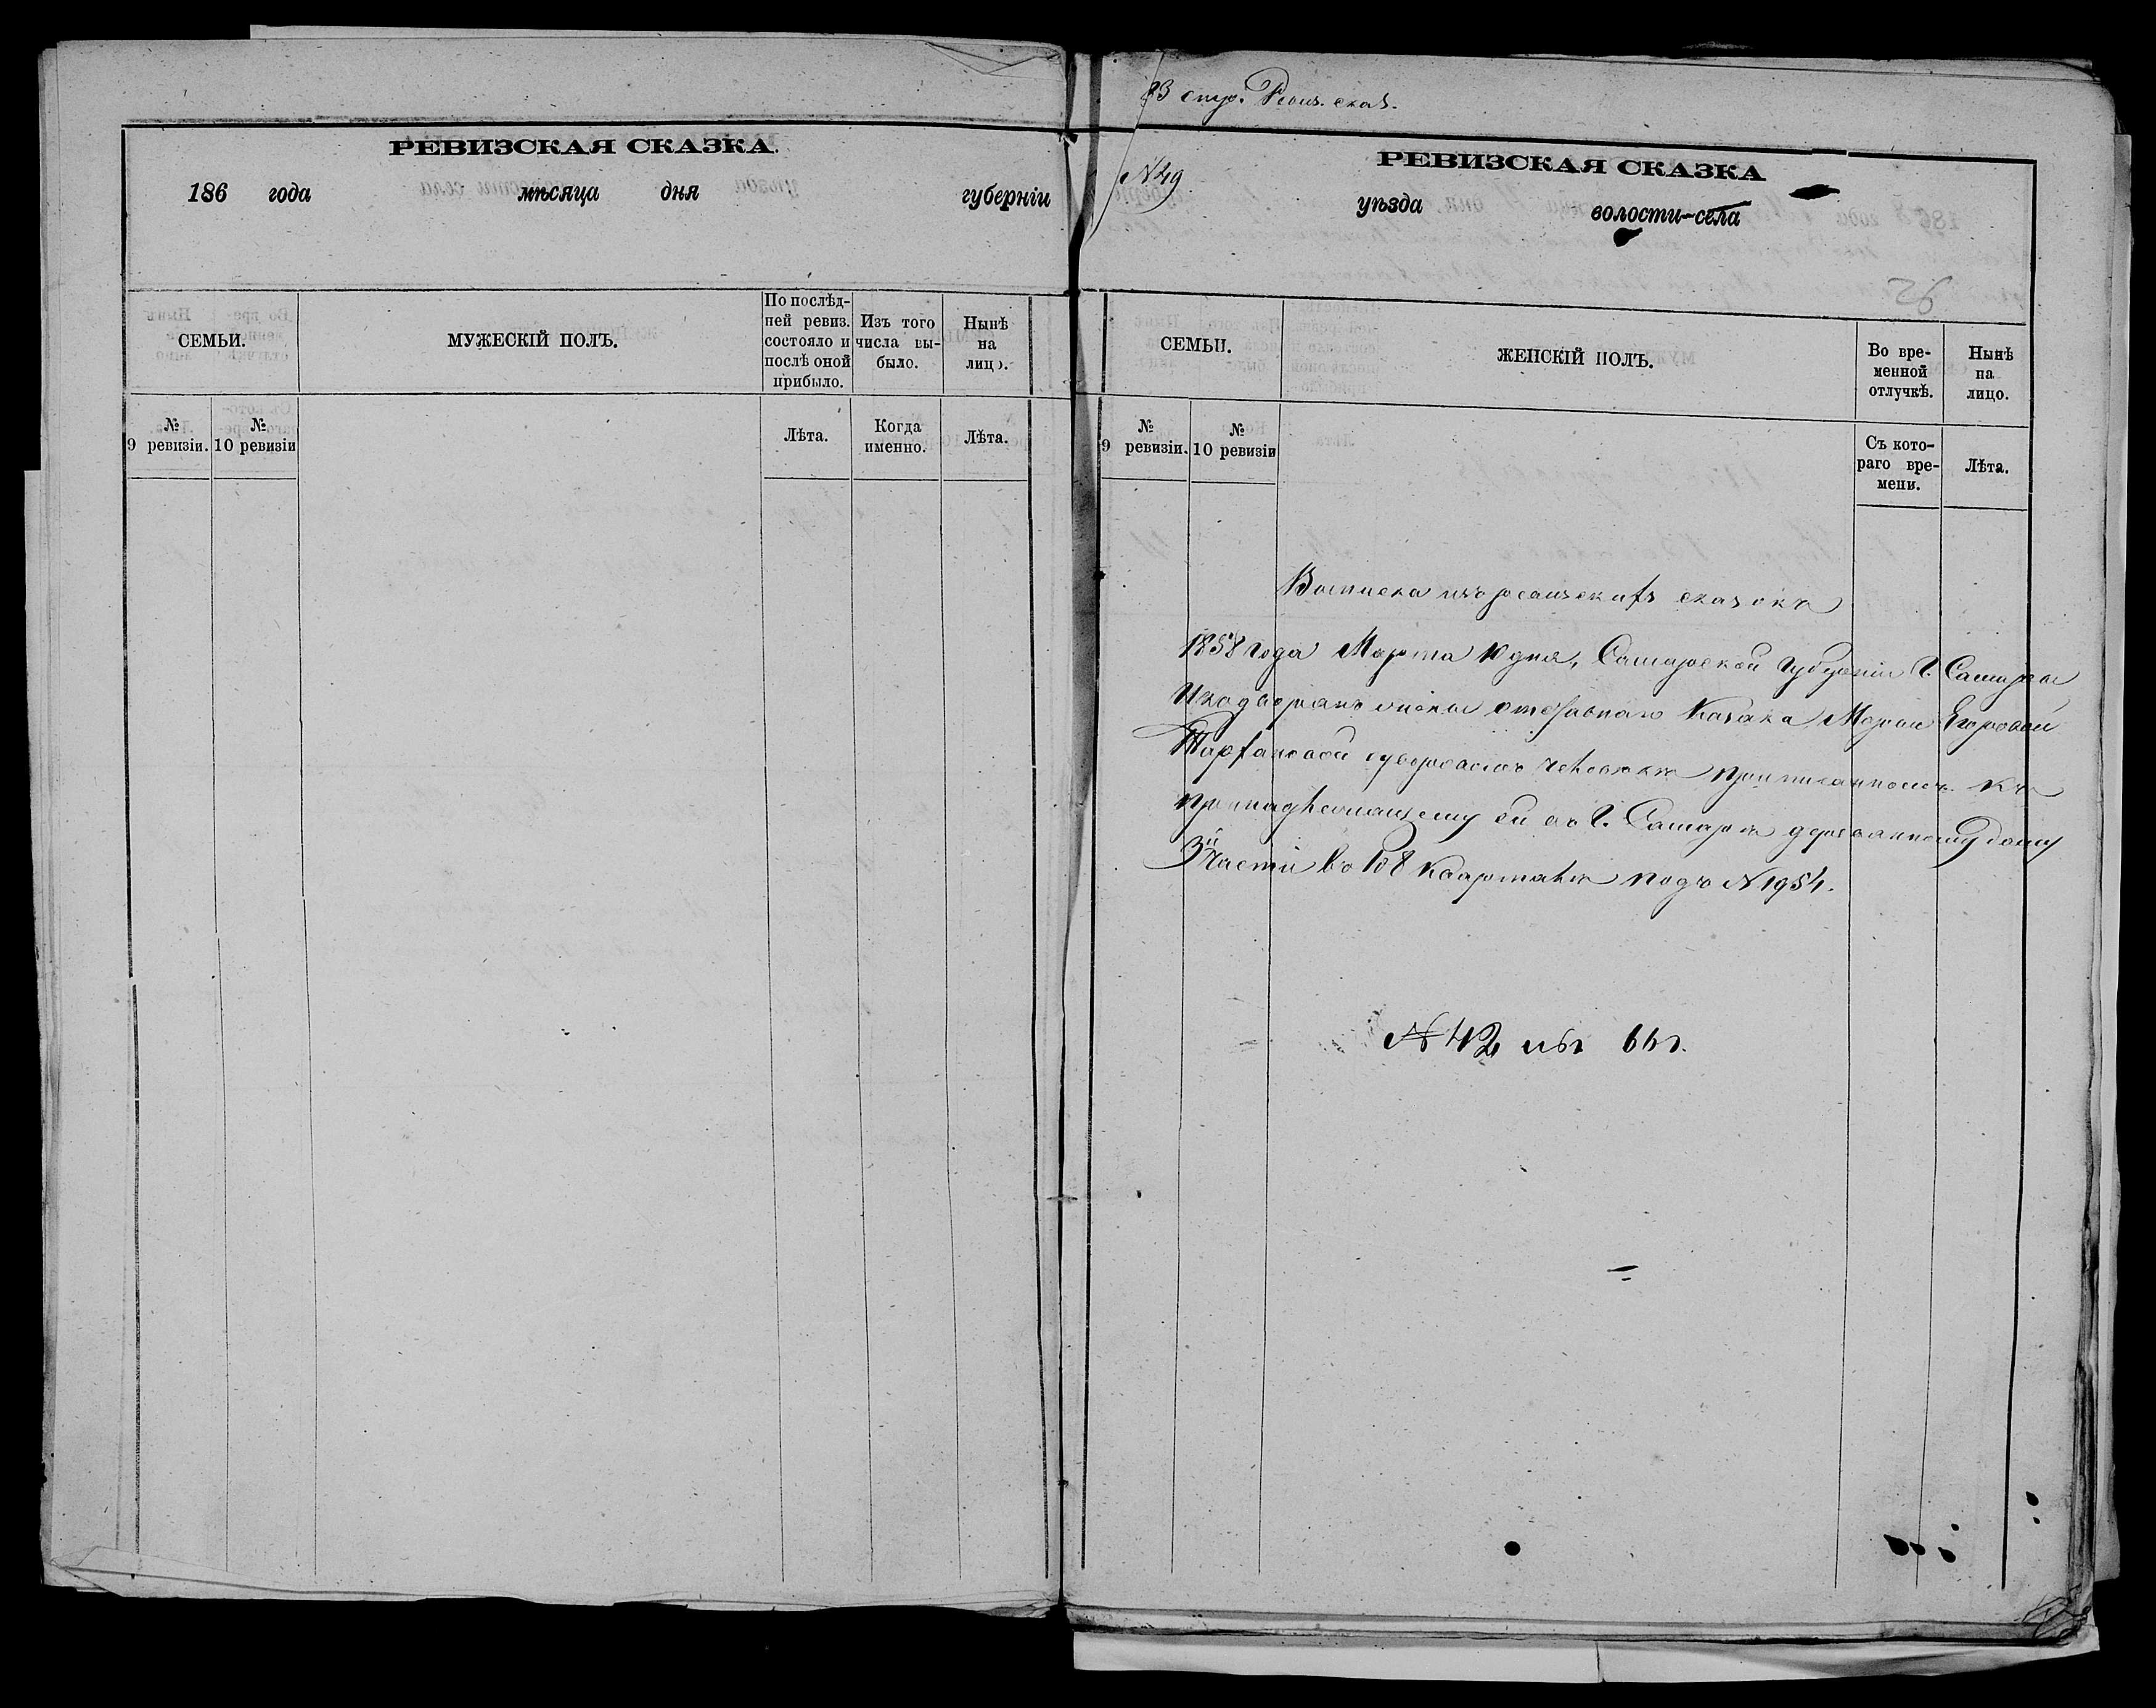 РЕВИЗСКАЯ СКАЗКА.
186 года мѣсяца дня губерніи
СЕМЬИ.
МУЖЕСКІЙ ПОЛЪ.
По послѣдней ревиз. состояло и послѣ оной прибыло.
Изъ того числа выбыло.
Нынѣ на лицо.
№ 9 ревизіи.
№ 10 ревизіи
Лѣта.
Когда именно.
Лѣта.
83 стр. Ревиз. сказ.
N 49
РЕВИЗСКАЯ СКАЗКА
уѣзда волости-села
26
СЕМЬИ.
ЖЕНСКІЙ ПОЛЪ.
Во временной отлучкѣ.
Нынѣ на лицо.
№ 9 ревизіи.
№ 10 ревизіи
Съ котораго времени.
Лѣта.
Выписка изъ ревизскихъ сказокъ
1858 года Марта 10 дня, Самарской Губерніи Г. Самары
Казака Марьи Егоровой
о дворовомъ человѣкѣ приписанномъ къ
принадлежащему ей въ Г. Самарѣ деревянному дому
3й Части въ 108 Кварталѣ подъ N 1954.
N 42